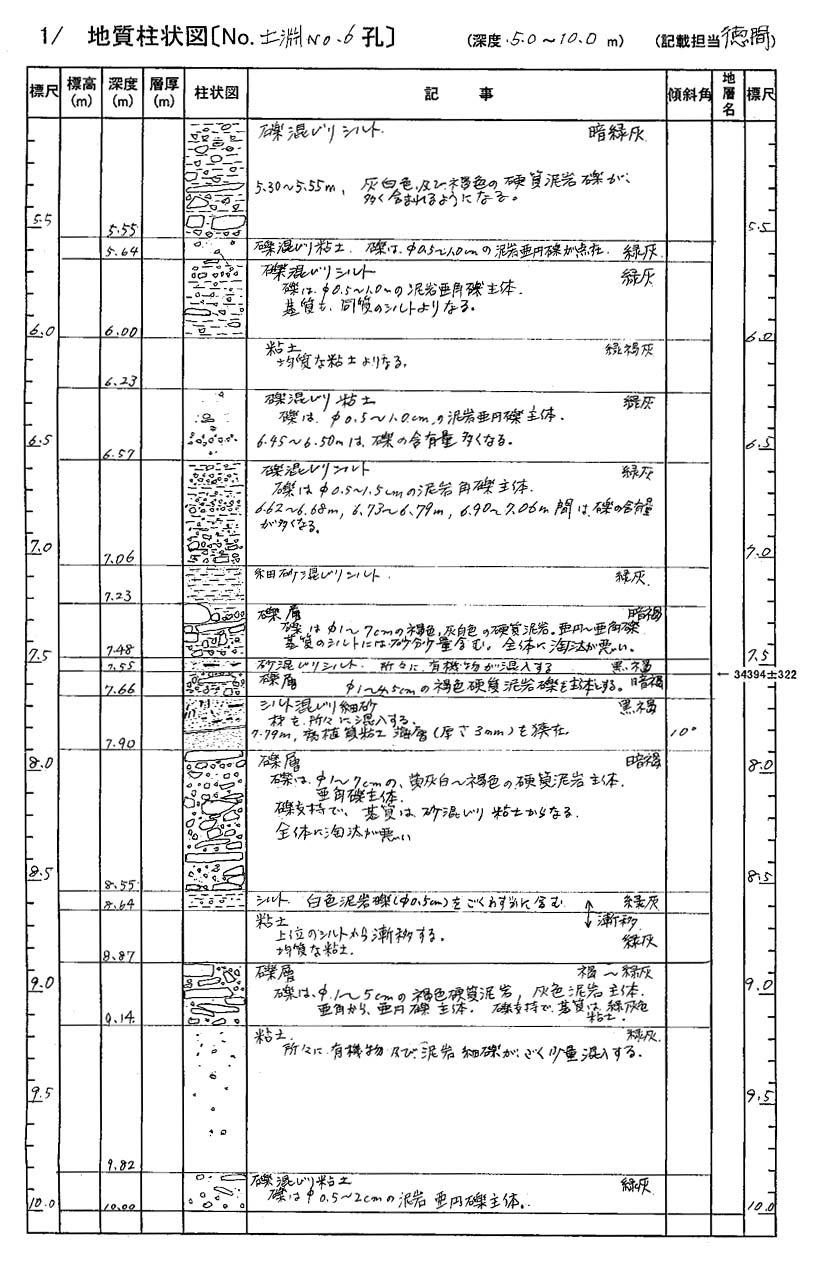 1/ 地質柱状図〔No. 土淵No.6 孔〕 (深度 5.0～10.0 m) (記載担当 徳間)
標尺 標高(m) 深度(m) 層厚(m) 柱状図 記事 傾斜角 地層名 標尺
礫混じりシルト. 暗緑灰
5.30～5.55m, 灰白色及び褐色の硬質泥岩礫が、
多く含まれるようになる。
5.5 5.55 5.5
5.64 礫混じり粘土. 礫は、φ0.5～1.0cmの泥岩亜円礫が点在. 緑灰
礫混じりシルト 緑灰
礫は、φ0.5～1.0mの泥岩亜角礫主体.
基質も、同質のシルトよりなる。
6.0 6.00 6.0
粘土 緑褐灰
均質な粘土よりなる。
6.23
礫混じり粘土 緑灰
礫は、φ0.5～1.0cmの泥岩亜円礫主体.
6.5 6.45～6.50mは、礫の含有量多くなる。 6.5
6.57
礫混じりシルト 緑灰
礫はφ0.5～1.5cmの泥岩角礫主体.
6.62～6.68m, 6.73～6.79m, 6.90～7.06m間は、礫の含有量
が多くなる。
7.0 7.06 7.0
細砂混じりシルト. 緑灰
7.23
礫層 暗褐
礫はφ1～7cmの褐色,灰白色の硬質泥岩.亜円～亜角礫
基質のシルトには砂分少量含む。全体に淘汰が悪い。
7.5 7.48 7.5
7.55 砂混じりシルト. 所々に有機物が混入する 黒褐
← 34394±322
7.66 礫層 φ1～4.5cmの褐色硬質泥岩礫を主体とする。 暗褐
シルト混じり細砂 黒褐
材を所々に混入する.
7.79m, 腐植質粘土薄層(厚さ3mm)を狭在. 10°
7.90
8.0 礫層 暗褐 8.0
礫は、φ1～7cmの、黄灰白～褐色の硬質泥岩主体.
亜角礫主体.
礫支持で、基質は、砂混じり粘土からなる.
全体に淘汰が悪い
8.5 8.55 8.5
8.64 シルト. 白色泥岩礫(φ0.5cm)をごくわずかに含む 緑灰
粘土 漸移
上位のシルトから漸移する。 緑灰
均質な粘土.
8.87
礫層 褐～緑灰
9.0 礫は、φ1～5cmの褐色硬質泥岩, 灰色泥岩主体. 9.0
亜角から、亜円礫主体. 礫支持で、基質は、緑灰色
粘土.
9.14
粘土. 緑灰
所々に有機物及び泥岩細礫が、ごく少量混入する.
9.5 9.5
9.82
礫混じり粘土 緑灰
礫はφ0.5～2cmの泥岩亜円礫主体.
10.0 10.00 10.0